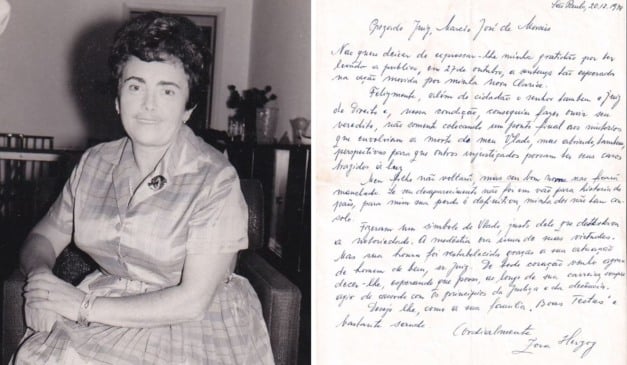 São Paulo, 20.12.1978
Prezado Juiz, Marcio José de Moraes
Não quero deixar de expressar-lhe minha gratidão por ter
levado a público, em 27 de outubro, a sentença tão esperada
na ação movida por minha nora Clarice.
Felizmente, além de cidadão o senhor também é juiz
de Direito e, nessa condição, conseguiu fazer ouvir seu
veredito, não somente colocando um ponto final aos mistérios
que envolviam a morte do meu Vlado, mas abrindo, também,
perspectivas para que outros injustiçados possam ter seus casos
trazidos à luz.
Meu filho não voltará, mas seu bom nome não ficará
manchado. Se seu desaparecimento não foi em vão para história do
país, para mim sua perda é definitiva, minha dor não tem con-
solo.
Fizeram um símbolo de Vlado, justo dele que detestava
a notoriedade. A modéstia era uma de suas virtudes.
Mas sua honra foi restabelecida graças a sua atuação
de homem de bem, sr. Juiz. De todo coração venho agra-
decer-lhe, esperando que possa, ao longo de sua carreira, sempre
agir de acordo com os princípios da Justiça e da decência.
Desejo lhe, como a sua família, "Boas Festas" e
bastante saúde.
Cordialmente
Zora Herzog